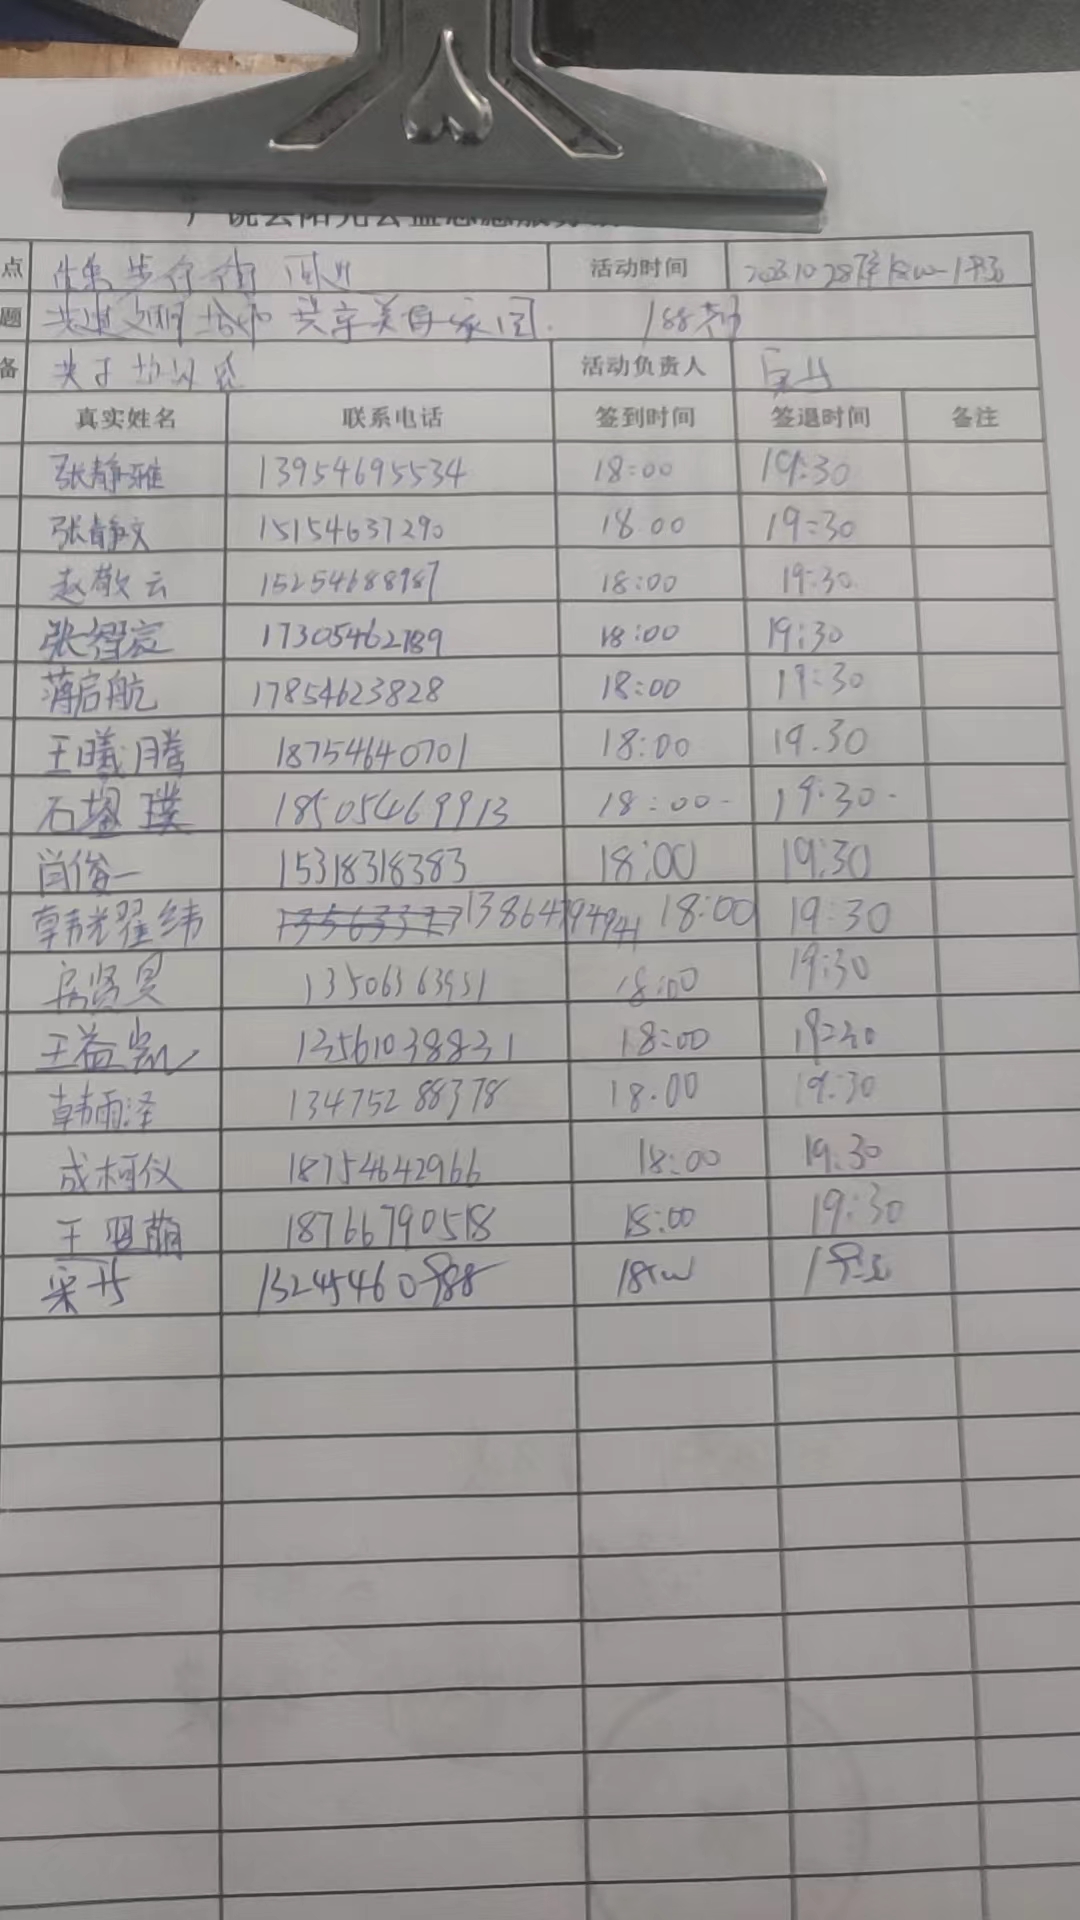 点 步行街 活动时间 2023.10.28
题 共建文明 共享美好家园. 188
备 活动负责人
真实姓名 联系电话 签到时间 签退时间 备注
张静雅 13954695534 18:00 19:30
张静文 15154637290 18.00 19:30
赵敬云 15254688987 18:00 19:30.
张智宸 17305462789 18:00 19:30
薄启航 17854623828 18:00 19:30
王曦腾 18754640701 18:00 19.30
石 璞 18505469913 18:00- 19.30-
肖俊一 15318318383 18:00 19:30
韩光翟纬 18:00 19:30
房贤昊 13506363951 18:00 19:30
王益凯 13561038831 18:00 19:30
韩雨泽 13475288378 18.00 19:30
成柯仪 18754642966 18:00 19.30
王 萌 18766790518 18:00 19:30